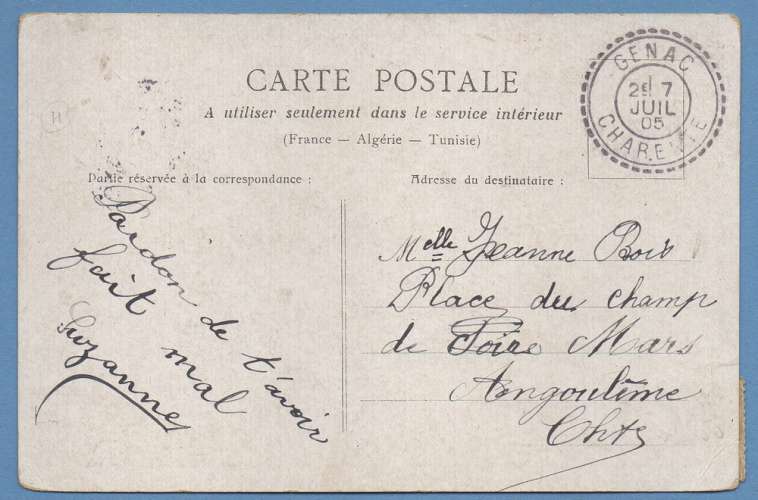 CARTE POSTALE
A utiliser seulement dans le service intérieur
(France — Algérie — Tunisie)
GENAC
29 7
JUIL
05
CHARENTE
H
Partie réservée à la correspondance :
Adresse du destinataire :
Pardon de t'avoir
fait mal
Suzanne
Melle Jeanne Bois
Place du Champ
de Foire Mars
Angoulême
Chte